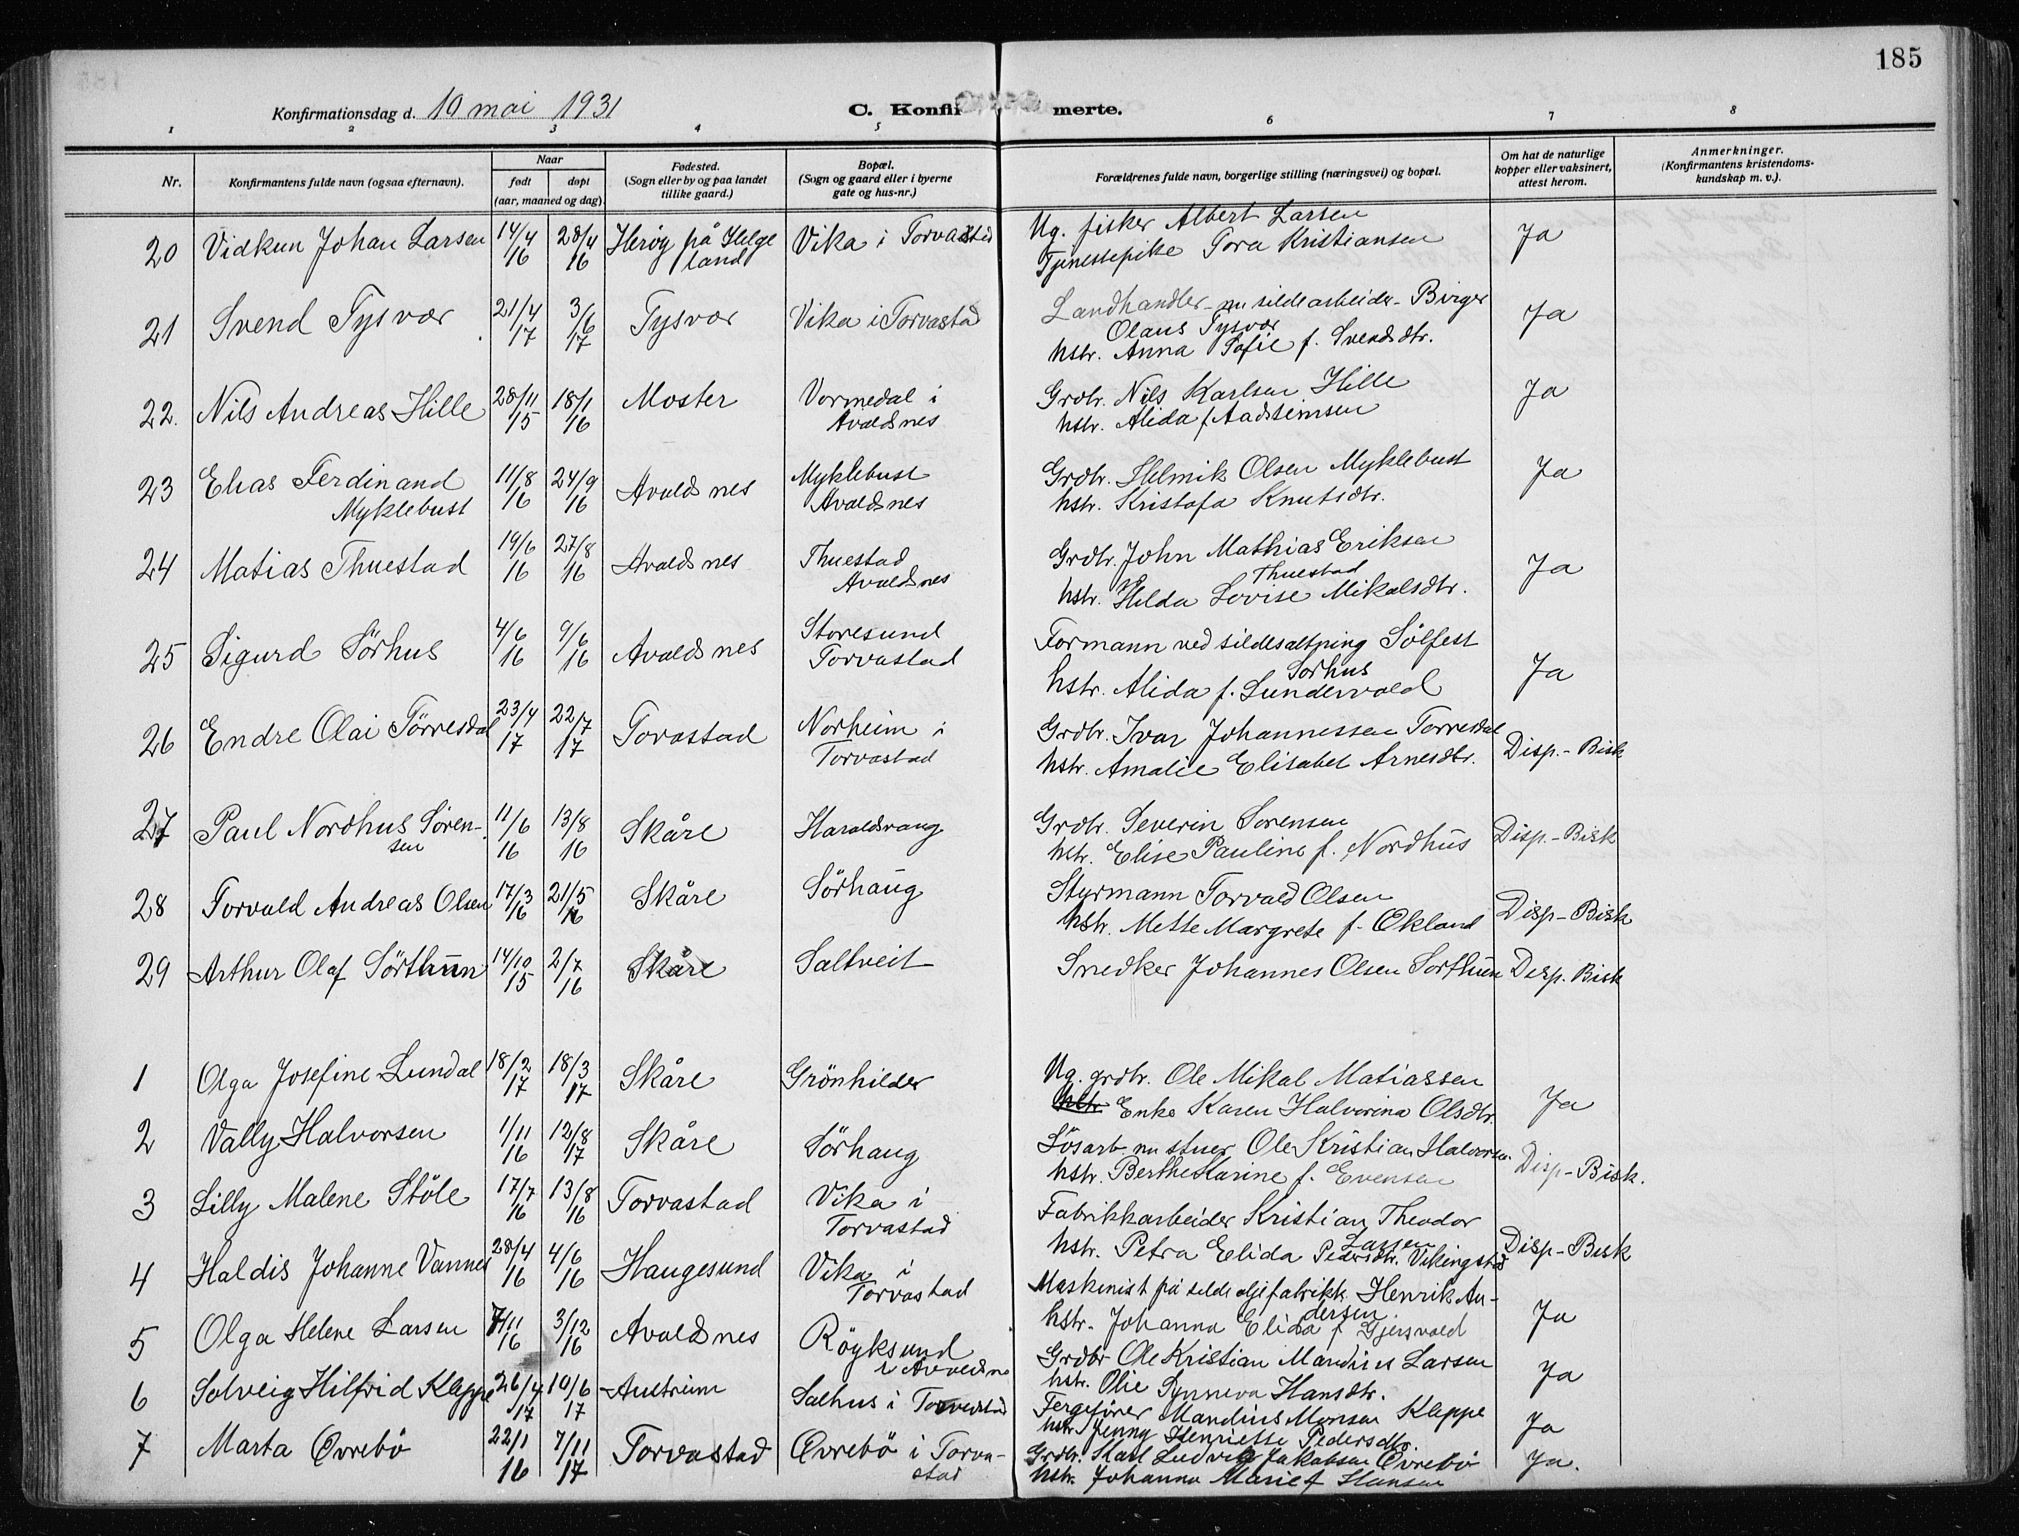 185
Konfirmationsdag d. 10 mai 1931
C. Konfirmerte.
1 2 3 4 5 6 7 8
Nr.
Konfirmantens fulde navn (ogsaa efternavn).
Naar
født døpt
(aar, maaned og dag)
Fødested.
(Sogn eller by og paa landet
tillike gaard.)
Bopæl.
(Sogn og gaard eller i byerne
gate og hus-nr.)
Forældrenes fulde navn, borgerlige stilling (næringsvei) og bopæl.
Om hat de naturlige
kopper eller vaksinert,
attest herom.
Anmerkninger.
(Konfirmantens kristendoms-
kundskap m. v.).
20 Vidkun Johan Larsen 14/4 16 28/4 16 Herøy på Helge
land Vika i Torvastad Ug. fisker Albert Larsen
Tjenestepike Tora Kristiansen Ja
21 Svend Tysvær 21/4 17 3/6 17 Tysvær Vika i Torvastad Landhandler nu sildearbeider Birger
Olaus Tysvær
hstr. Anna Sofie f. Svendsdtr. Ja
22. Nils Andreas Hille 28/11 15 18/1 16 Moster Vormedal i
Avaldsnes Grdbr. Nils Karlsen Hille
hstr. Alida f. Ja
23 Elias Ferdinand
Myklebust 11/8 16 24/9 16 Avaldsnes Myklebust
Avaldsnes Grdbr. Helmik Olsen Myklebust
hstr. Kristofa Knutsdtr. Ja
24 Matias Thuestad 19/6 16 27/8 16 Avaldsnes Thuestad
Avaldsnes Grdbr. John Mathias Eriksen
Thuestad
hstr. Hilda Lovise Mikalsdtr. Ja
25 Sigurd Sörhus 4/6 16 9/6 16 Avaldsnes Storesund
Torvastad Formann ved sildesaltning Sölfest
Sorhus
hstr. Alida f. Sundervold Ja
26 Endre Olai Törresdal 23/4 17 22/7 17 Torvastad Norheim i
Torvastad Grdbr. Ivar Johannessen Torresdal
hstr. Amalie Elisabet Arnesdtr. Disp.-Bisk
27 Paul Nordhus Sören-
sen 11/6 16 13/8 16 Skåre Haraldsvang Grdbr. Severin Sorensen
hstr. Elise Pauline f. Nordhus Disp.-Bisk
28 Torvald Andreas Olsen 17/3 16 21/5 16 Skåre Sörhaug Styrmann Torvald Olsen
hstr. Mette Margrete f. Økland Disp-Bisk
29 Arthur Olaf Sörthun 14/10 15 2/7 16 Skåre Saltveit Snedker Johannes Olsen Sorthun Disp. Bisk
1 Olga Josefine Lundal 18/2 17 18/3 17 Skåre Grönhilder Ug. grdbr. Ole Mikal Matiassen
hstr. Enke Karen Halvorina Olsdtr. Ja
2 Vally Halvorsen 1/11 16 12/8 17 Skåre Sörhaug Lösarb. nu stuer Ole Kristian Halvorsen
hstr. Berthe Karine f. Evensen Disp-Bisk.
3 Lilly Malene Stöle 17/7 16 13/8 16 Torvastad Vika i
Torvastad Fabrikkarbeider Kristian Theodor
Larsen
hstr. Petra Elida Pedersdtr. Vikingstad Disp-Bisk
4 Haldis Johanne Vannes 28/4 16 4/6 16 Haugesund Vika i
Torvastad Maskinist på sildeoljefabrikk Henrik An-
dersen
hstr. Johanna Elida f. Gjersvold Ja
5 Olga Helene Larsen 7/11 16 3/12 16 Avaldsnes Röyksund
i Avaldsn Grdbr Ole Kristian Mandius Larsen
hstr. Olie Synneva Hansdtr. Ja
6 Solveig Hilfrid Kleppe 26/4 17 10/6 17 Austreim Salhus i Torvastad Fergefører Mandius Monsen Kleppe
hstr. Jenny Henriette Pedersdtr. Ja
7 Marta Øvrebö 22/1 16 7/11 17 Torvastad Øvrebö i Torva-
stad Grdbr. Karl Ludvig Jakobsen Øvrebö
hstr. Johanna Marie f Hansen Ja.